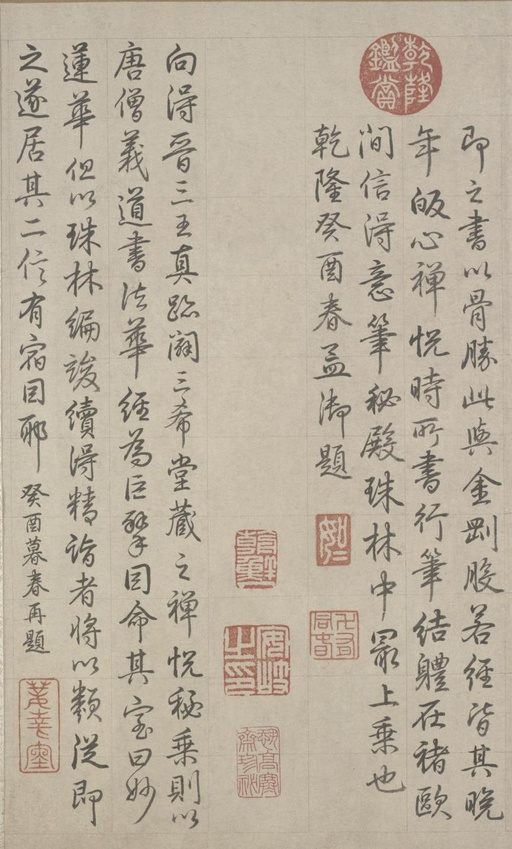 乾隆鑑賞
即之書以骨勝此與金剛般若經皆其晚
年皈心禪悅時所書行筆結體在褚歐
間信得意筆秘殿珠林中最上乘也
乾隆癸酉春孟御題
向得晉三王真跡闢三希堂藏之禪悅秘乘則以
唐僧義道書法華經為巨擘因命其室曰妙
蓮華但以珠林編竣續得精詣者將以類從即
之遂居其二信有宿因耶
癸酉暮春再題